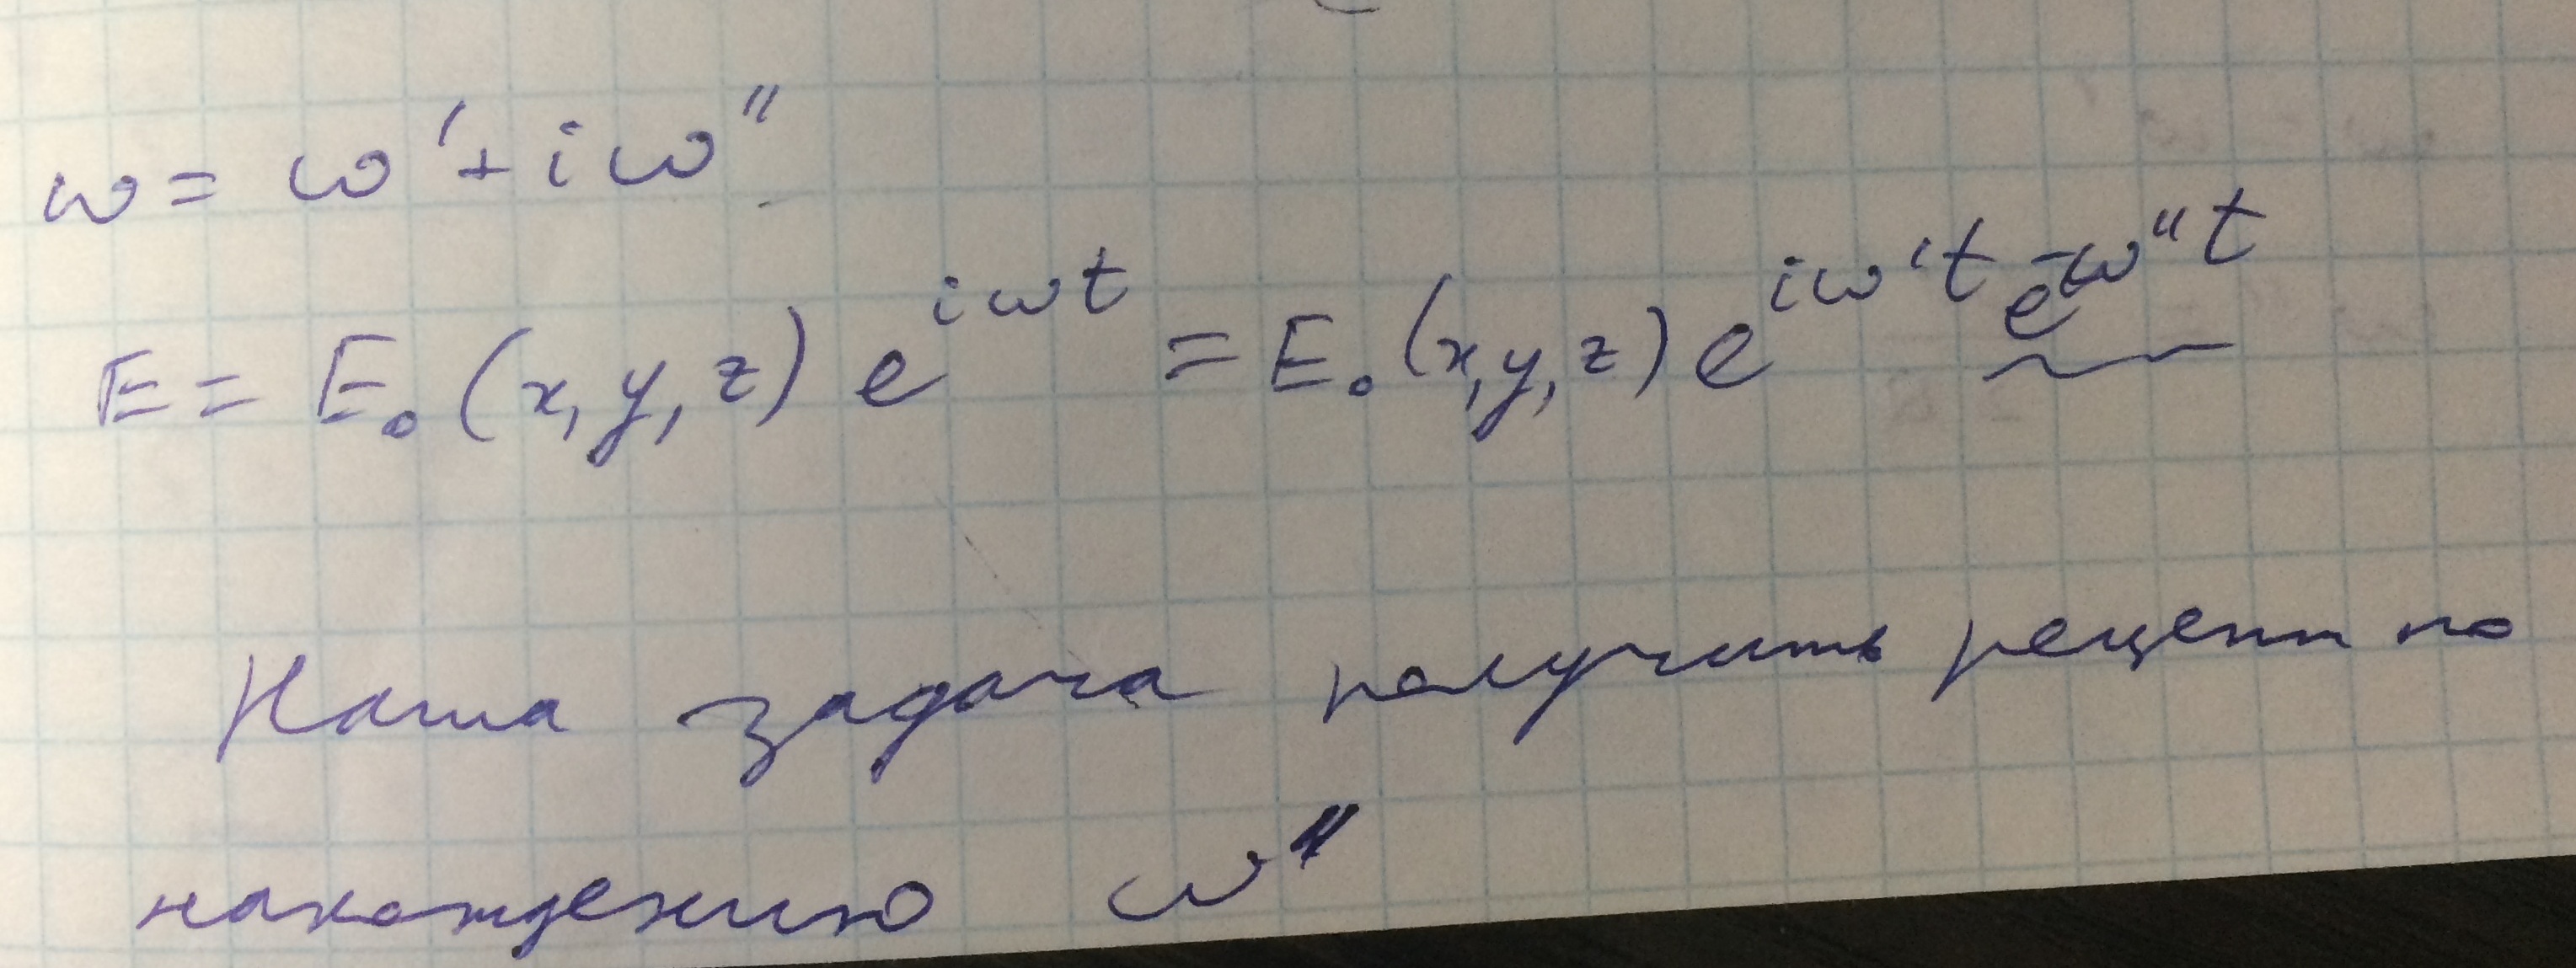 ω = ω' + iω''
E = E₀ (x, y, z) e^{iωt} = E₀ (x, y, z) e^{iω't} e^{-ω''t}
Наша задача получить рецепт по
нахождению ω''